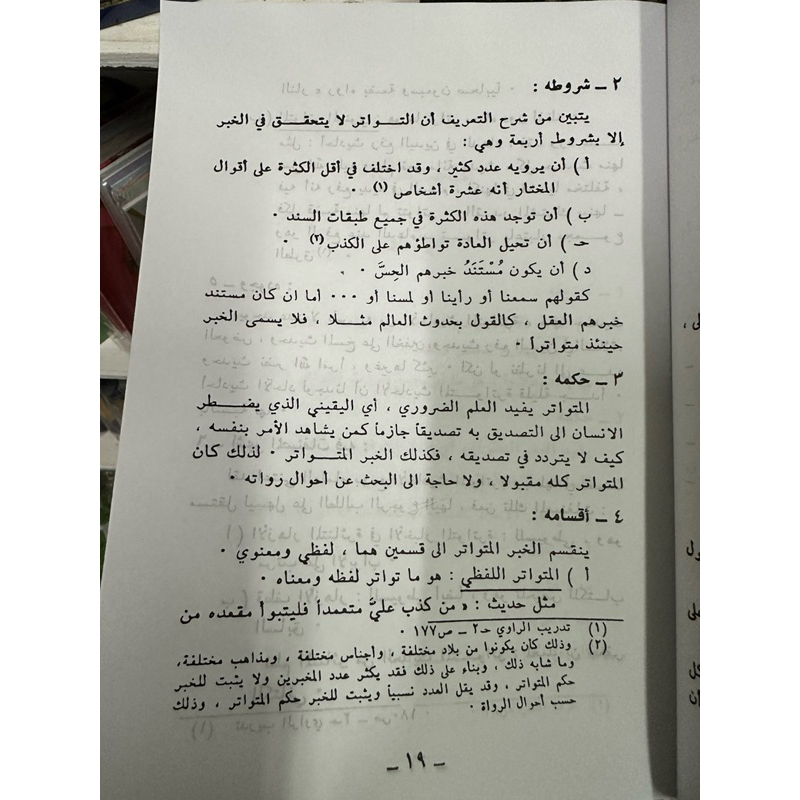 ٢ ــ شروطه :
يتبين من شرح التعريف أن التـــواتر لا يتحقـــق في الخبر
إلا بشروط أربعة وهي :
أ ) أن يرويه عدد كثير ، وقد اختلف في أقل الكثرة على أقوال
المختار أنه عشرة أشخاص (١) ٠
ب ) أن توجد هذه الكثرة في جميع طبقات السند ٠
حـ ) أن تحيل العادة تواطؤهم على الكذب (٢) ٠
د ) أن يكون مُسْتَنَدُ خبرهم الحِسَّ ٠
كقولهم سمعنا أو رأينا أو لمسنا أو ٠٠٠ أما ان كان مستند
خبرهم العقل ، كالقول بحدوث العالم مثـــلا ، فلا يسمى الخبر
حينئذ متواتراً ٠
٣ ــ حكمه :
المتواتر يفيد العلم الضروري ، أي اليقيني الذي يضـــطر
الانسان الى التصديق به تصديقاً جازماً كمن يشاهد الأمر بنفسه ،
كيف لا يتردد في تصديقه ، فكذلك الخبر المتـــواتر ٠ لذلك كان
المتواتر كله مقبولا ، ولا حاجة الى البحث عن أحوال رواته ٠
٤ ــ أقسامه :
ينقسم الخبر المتواتر الى قسمين هما ، لفظي ومعنوي ٠
أ ) المتواتر اللفظي : هو ما تواتر لفظه ومعناه ٠
مثل حديث : « من كذب عليَّ متعمداً فليتبوأ مقعده من
(١) تدريب الراوي حـ٢ ــ ص١٧٧ ٠
(٢) وذلك كأن يكونوا من بلاد مختلفة ، وأجناس مختلفة ، ومذاهب مختلفة،
وما شابه ذلك ، وبناء على ذلك فقد يكثر عدد المخبرين ولا يثبت للخبر
حكم المتواتر ، وقد يقل العدد نسبياً ويثبت للخبر حكم المتواتر ، وذلك
حسب أحوال الرواة ٠
ــ ١٩ ــ